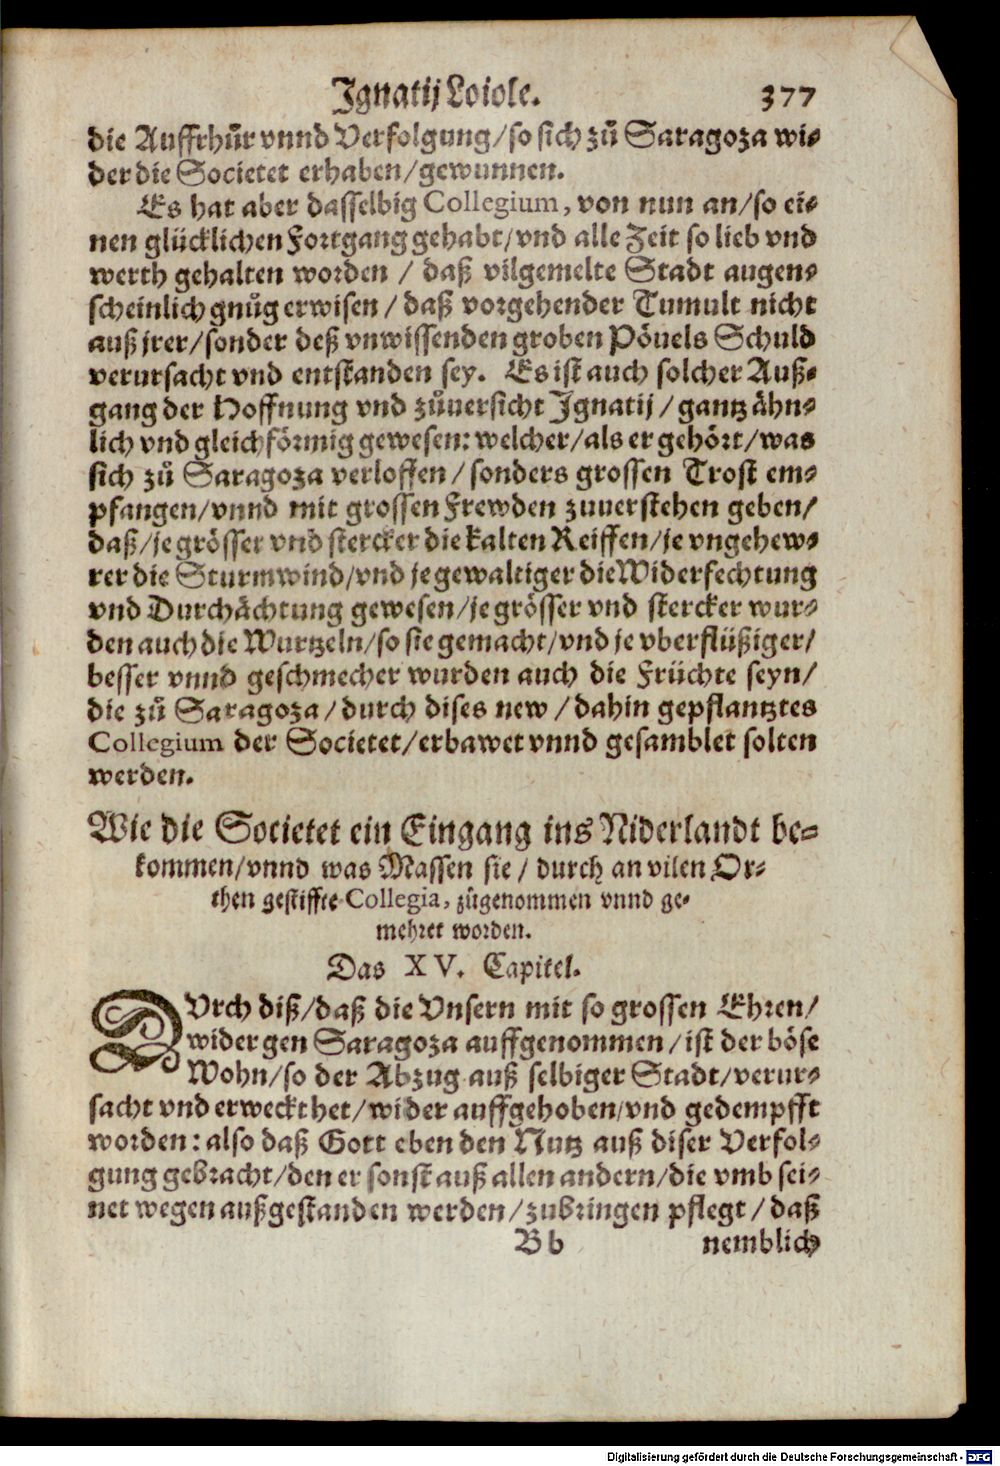 Ignatij Loiole. 377
die Auffrhůr vnnd Verfolgung/so sich zů Saragoza wi-
der die Societet erhaben/gewunnen.
Es hat aber dasselbig Collegium, von nun an/so ei-
nen glücklichen Fortgang gehabt/vnd alle Zeit so lieb vnd
werth gehalten worden / daß vilgemelte Stadt augen-
scheinlich gnůg erwisen / daß vorgehender Tumult nicht
auß jrer/sonder deß vnwissenden groben Pövels Schuld
verursacht vnd entstanden sey. Es ist auch solcher Auß-
gang der Hoffnung vnd zůuersicht Ignatij / gantz ähn-
lich vnd gleichförmig gewesen: welcher/als er gehört/was
sich zů Saragoza verloffen / sonders grossen Trost em-
pfangen/vnnd mit grossen Frewden zuuerstehen geben/
daß/je grösser vnd stercker die kalten Reiffen/je vngehew-
rer die Sturmwind/vnd je gewaltiger die Widerfechtung
vnd Durchächtung gewesen/je grösser vnd stercker wur-
den auch die Wurtzeln/so sie gemacht/vnd je vberflüßiger/
besser vnnd geschmecher wurden auch die Früchte seyn/
die zů Saragoza / durch dises new / dahin gepflantztes
Collegium der Societet/erbawet vnnd gesamblet solten
werden.
Wie die Societet ein Eingang ins Niderlandt be-
kommen/vnnd was Massen sie / durch an vilen Or-
then gestiffte Collegia, zůgenommen vnnd ge-
mehret worden.
Das XV. Capitel.
DVrch diß/daß die Vnsern mit so grossen Ehren/
wider gen Saragoza auffgenommen / ist der böse
Wohn/so der Abzug auß selbiger Stadt/verur-
sacht vnd erweckt het/wider auffgehoben/vnd gedempfft
worden: also daß Gott eben den Nutz auß diser Verfol-
gung gebracht/den er sonst auß allen andern/die vmb sei-
net wegen außgestanden werden/zubringen pflegt / daß
Bb nemblich
Digitalisierung gefördert durch die Deutsche Forschungsgemeinschaft - DFG